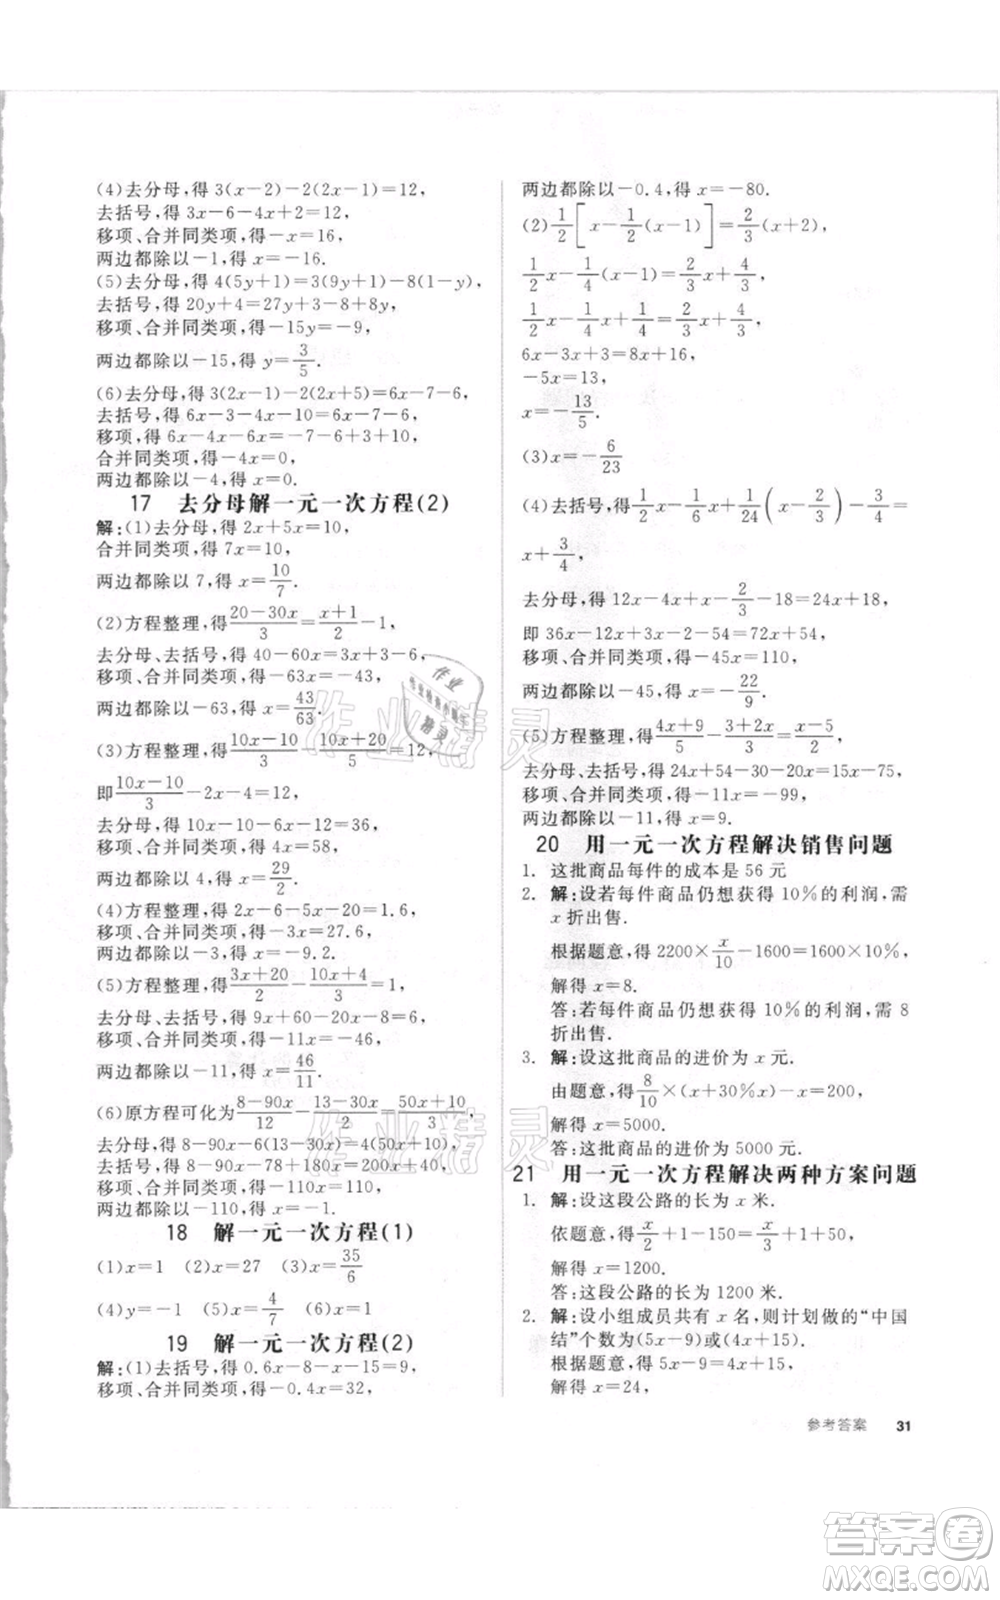 (4)去分母,得 3(x-2)-2(2x-1)=12,
去括号,得 3x-6-4x+2=12,
移项、合并同类项,得-x=16,
两边都除以-1,得 x=-16.
(5)去分母,得 4(5y+1)=3(9y+1)-8(1-y),
去括号,得 20y+4=27y+3-8+8y,
移项、合并同类项,得-15y=-9,
两边都除以-15,得 y=3/5.
(6)去分母,得 3(2x-1)-2(2x+5)=6x-7,
去括号,得 6x-3-4x-10=6x-7,
移项,得 6x-4x-6x=3+10-7,
合并同类项,得-4x=0,
两边都除以-4,得 x=0.
17 去分母解一元一次方程(2)
解:(1)去分母,得 2x+5x=10,
合并同类项,得 7x=10,
两边都除以 7,得 x=10/7.
(2)方程整理,得(20-30x)/3=(x+1)/2-1,
去分母、去括号,得 40-60x=3x+3-6,
移项、合并同类项,得-63x=-43,
两边都除以-63,得 x=43/63.
(3)方程整理,得(10x-10)/3-(10x+20)/5=12,
即(10x-10)/3-2x-4=12,
去分母,得 10x-10-6x-12=36,
移项、合并同类项,得 4x=58,
两边都除以 4,得 x=29/2.
(4)方程整理,得 2x-6-5x-20=1.6,
移项、合并同类项,得-3x=27.6,
两边都除以-3,得 x=-9.2.
(5)方程整理,得(3x+20)/2-(10x+4)/3=1,
去分母、去括号,得 9x+60-20x-8=6,
移项、合并同类项,得-11x=-46,
两边都除以-11,得 x=46/11.
(6)原方程可化为(8-90x)/12-(13-30x)/2=(50x+10)/3,
去分母,得 8-90x-6(13-30x)=4(50x+10),
去括号,得 8-90x-78+180x=200x+40,
移项、合并同类项,得-110x=110,
两边都除以-110,得 x=-1.
18 解一元一次方程(1)
(1)x=1 (2)x=27 (3)x=35/6
(4)y=-1 (5)x=4/7 (6)x=1
19 解一元一次方程(2)
解:(1)去括号,得 0.6x-8-x-15=9,
移项、合并同类项,得-0.4x=32,
两边都除以-0.4,得 x=-80.
(2)1/2[x-1/2(x-1)]=2/3(x+2),
1/2x-1/4(x-1)=2/3x+4/3,
1/2x-1/4x+1/4=2/3x+4/3,
6x-3x+3=8x+16,
-5x=13,
x=-13/5.
(3)x=-6/23
(4)去括号,得1/2x-1/6x+1/24(x-2/3)-3/4=
x+3/4,
去分母,得 12x-4x+x-2/3-18=24x+18,
即 36x-12x+3x-2-54=72x+54,
移项、合并同类项,得-45x=110,
两边都除以-45,得 x=-22/9.
(5)方程整理,得(4x+9)/5-(3+2x)/3=(x-5)/2,
去分母、去括号,得 24x+54-30-20x=15x-75,
移项、合并同类项,得-11x=-99,
两边都除以-11,得 x=9.
20 用一元一次方程解决销售问题
1. 这批商品每件的成本是 56 元
2. 解:设若每件商品仍想获得 10%的利润,需
x 折出售.
根据题意,得 2200×x/10-1600=1600×10%,
解得 x=8.
答:若每件商品仍想获得 10%的利润,需 8
折出售.
3. 解:设这批商品的进价为 x 元.
由题意,得8/10×(x+30%x)-x=200,
解得 x=5000.
答:这批商品的进价为 5000 元.
21 用一元一次方程解决两种方案问题
1. 解:设这段公路的长为 x 米.
依题意,得x/2+1-150=x/3+1+50,
解得 x=1200.
答:这段公路的长为 1200 米.
2. 解:设小组成员共有 x 名,则计划做的“中国
结”个数为(5x-9)或(4x+15).
根据题意,得 5x-9=4x+15,
解得 x=24,
参考答案 31
作业精灵
作业精灵
答案卷
MXQE.COM